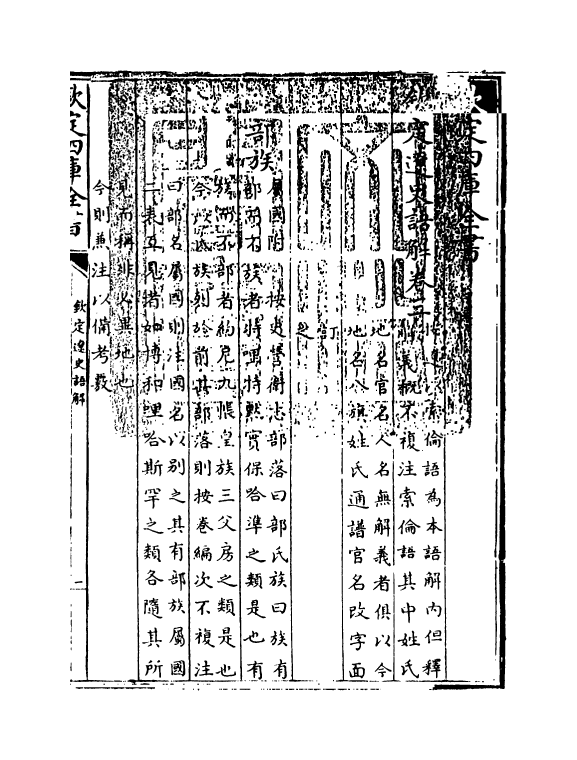 欽定四庫全書
欽定遼史語解卷
按遼以索倫語為本語解内但釋
解義概不複注索倫語其中姓氏
地名官名人名無解義者俱以今
地名八旗姓氏通譜官名改字面
訂之
部族
屬國附 按遼營衛志部落曰部氏族曰族有
部而不族者特哩特黙實保哈準之類是也有
族而不部者約尼九帳皇族三父房之類是也
今以氏族列於前其部落則按卷編次不複注
曰部名屬國則注國名以別之其有部族屬國
二表互見者如博和哩哈斯罕之類各隨其所
見而稱非必異地也
今則兼注以備考覈
欽定四庫全書
欽定遼史語解
一